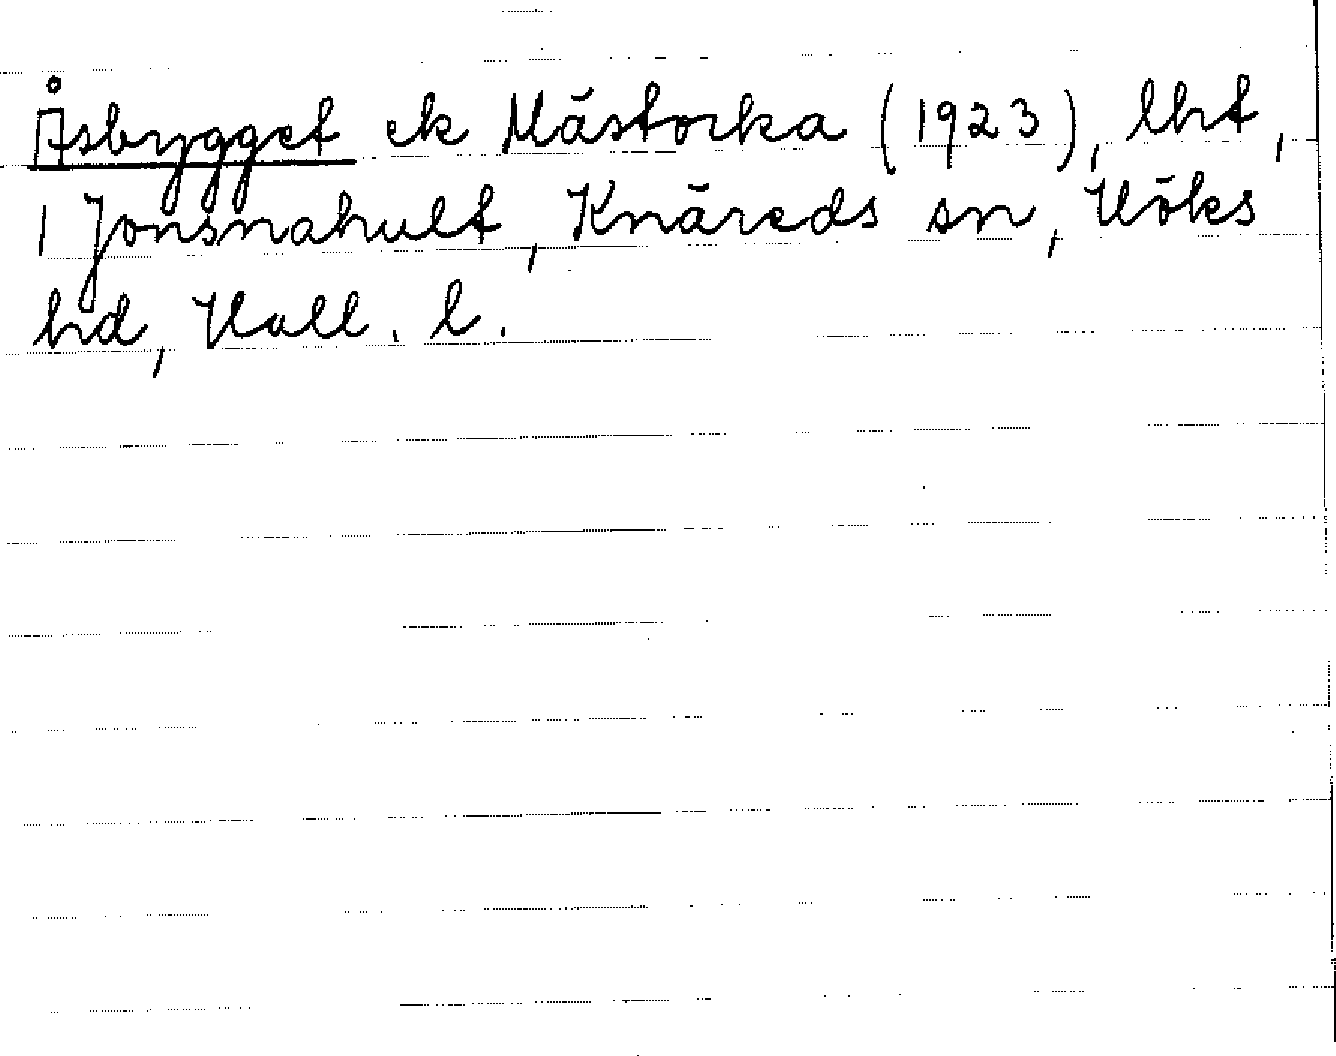 Åsbygget ek Mästocka (1923), lht,
1 Jonsnahult, Knäreds sn, Höks
hd, Hall. l.